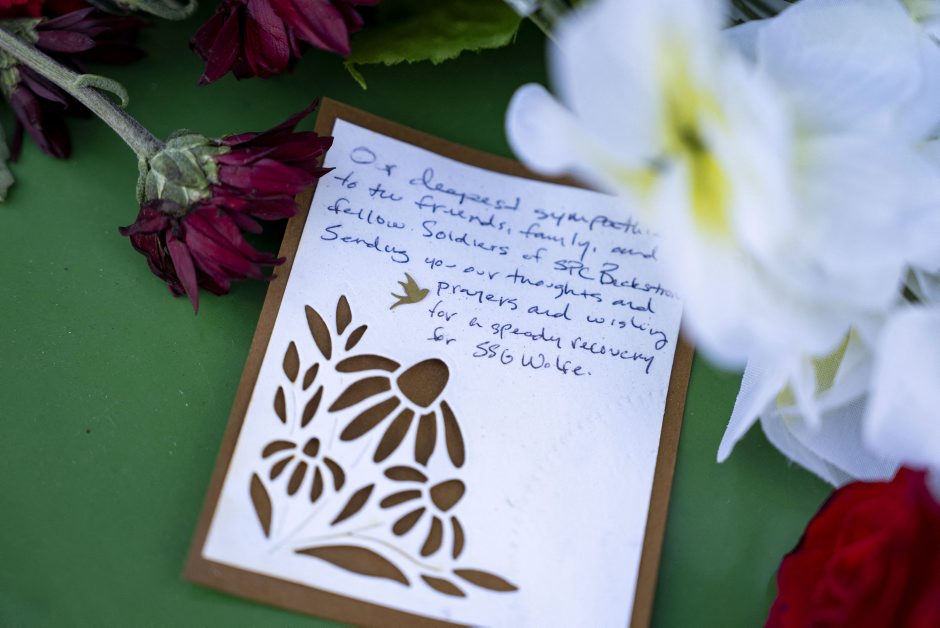 Our deepest sympathi
to the friends, family, and
fellow Soldiers of SPC Beckstrom
Sending you our thoughts and
prayers and wishing
for a speedy recovery
for SSG Wolfe.